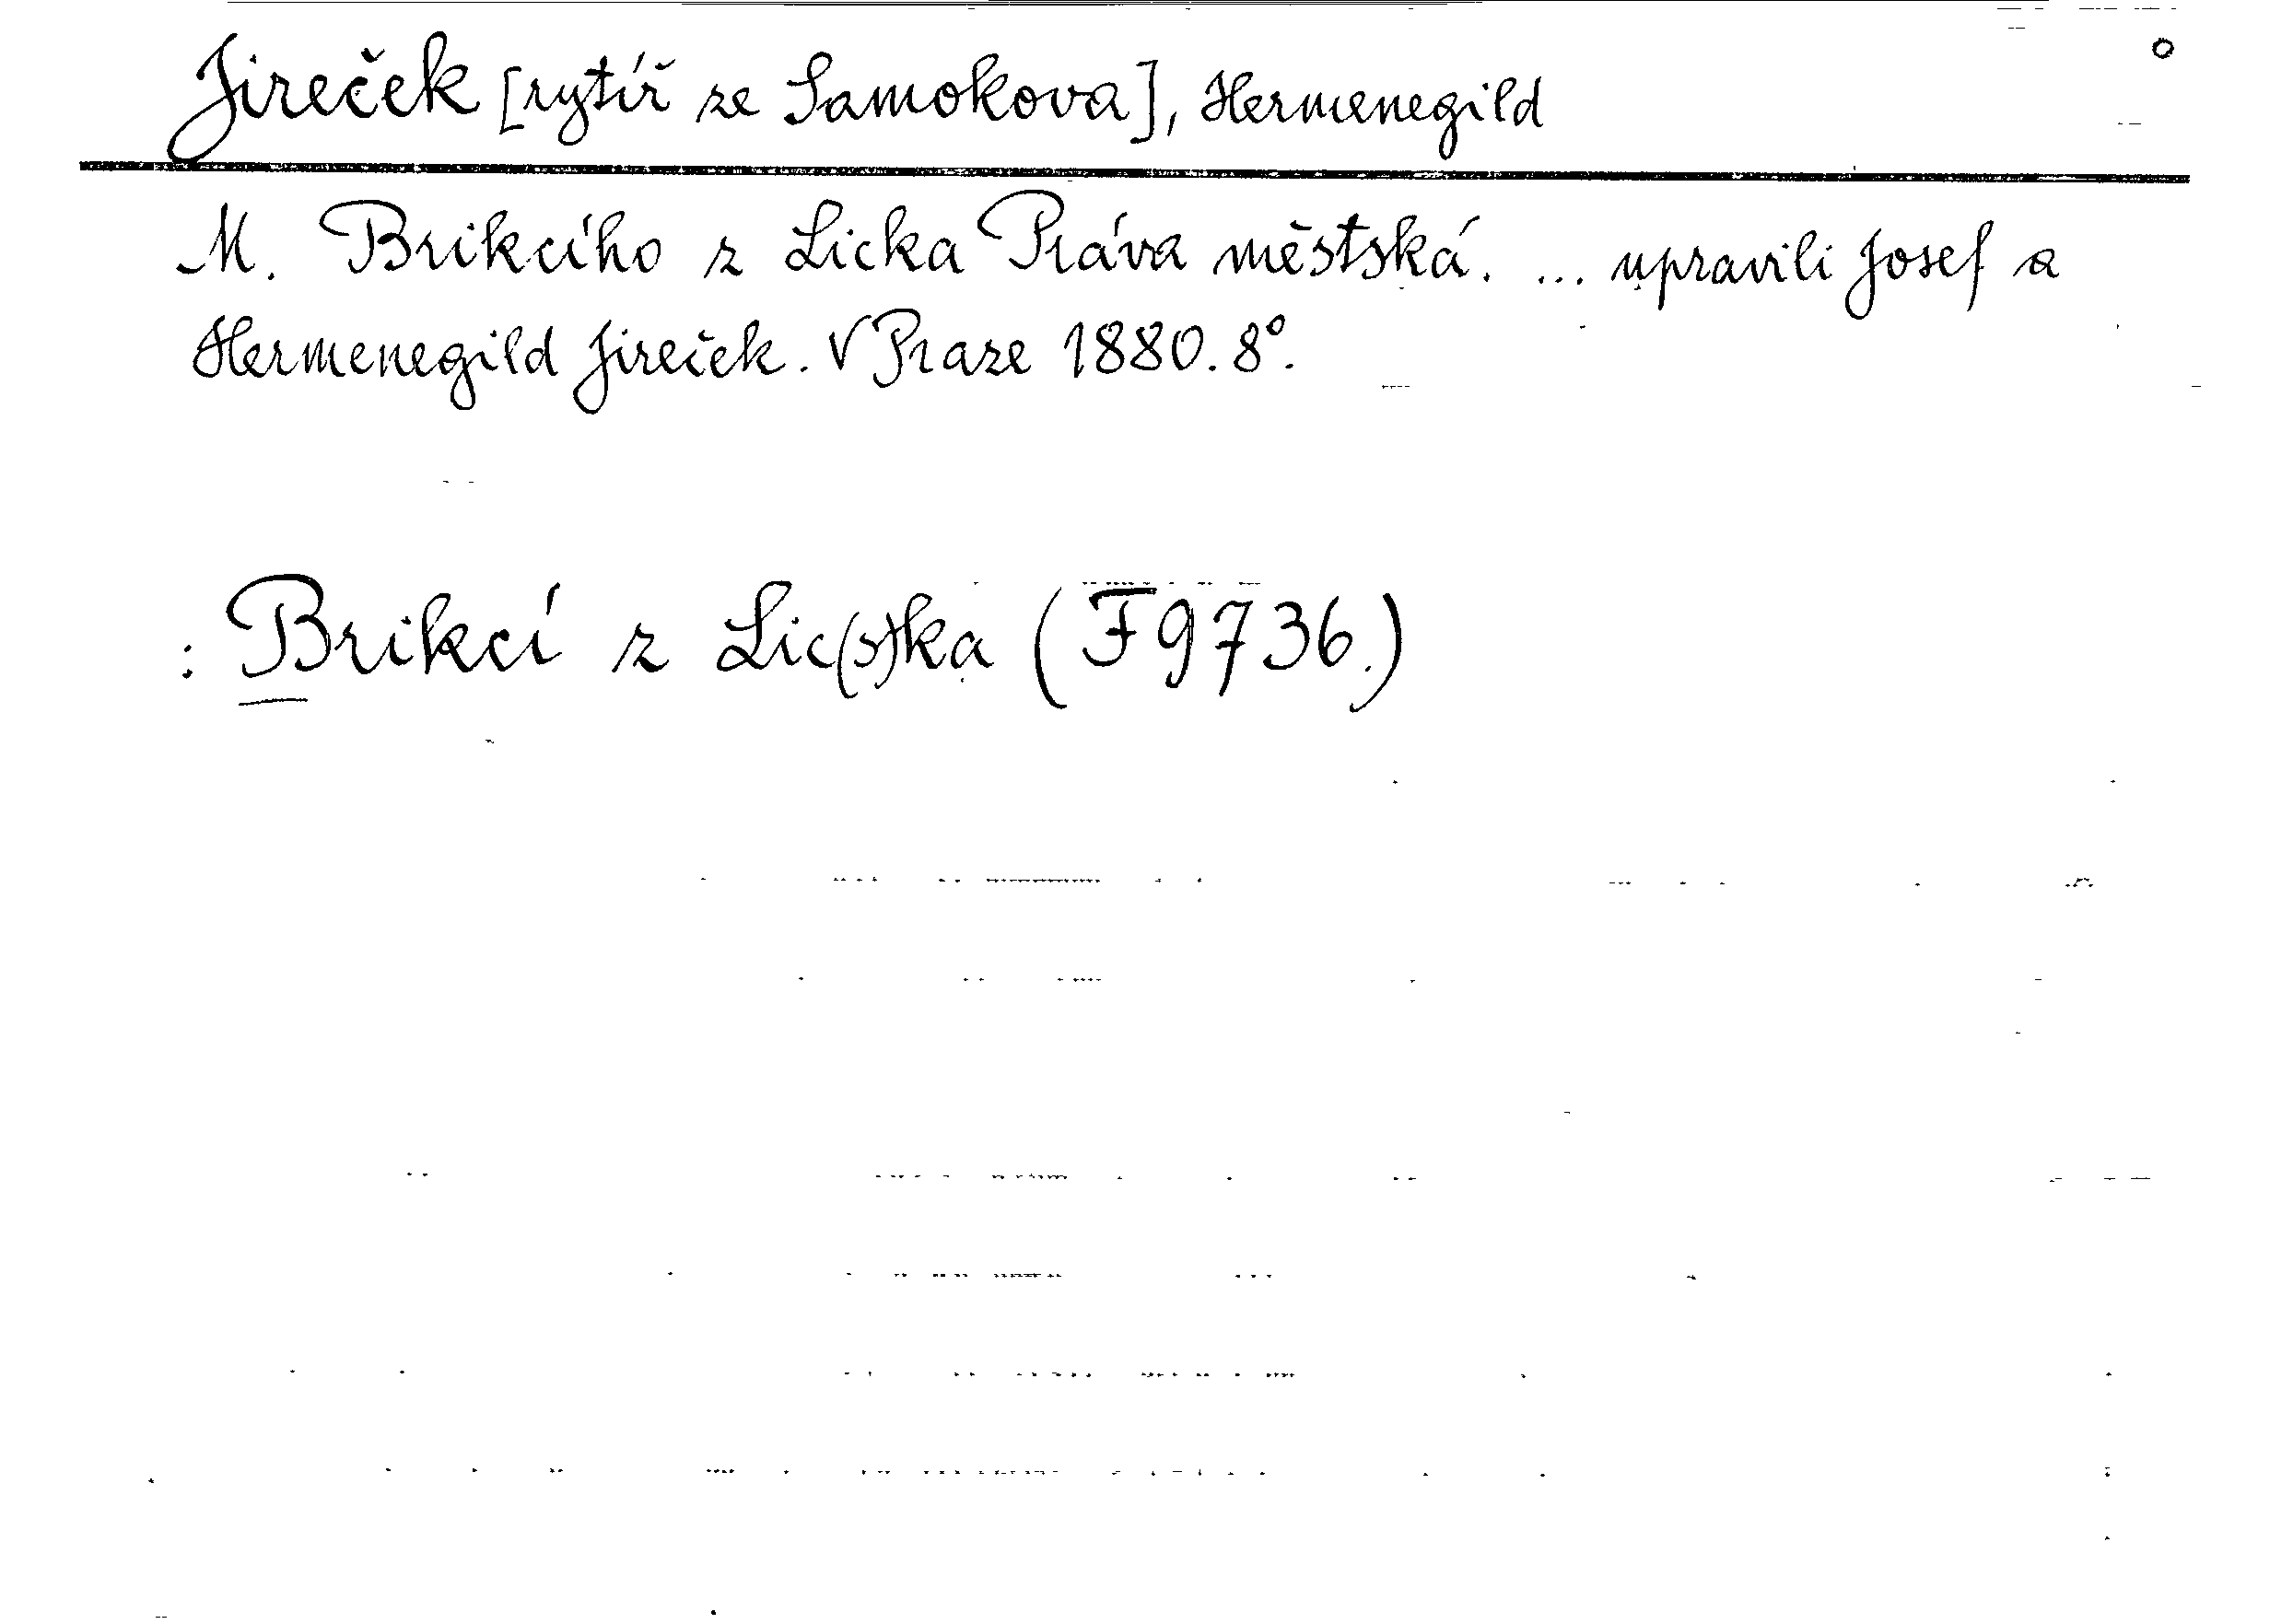 Jireček [rytíř ze Samokova], Hermenegild
M. Brikcího z Licka Práva městská. ... upravili Josef a
Hermenegild Jireček. V Praze 1880. 8°.
: Brikcí z Lic(s)ka (F9736.)